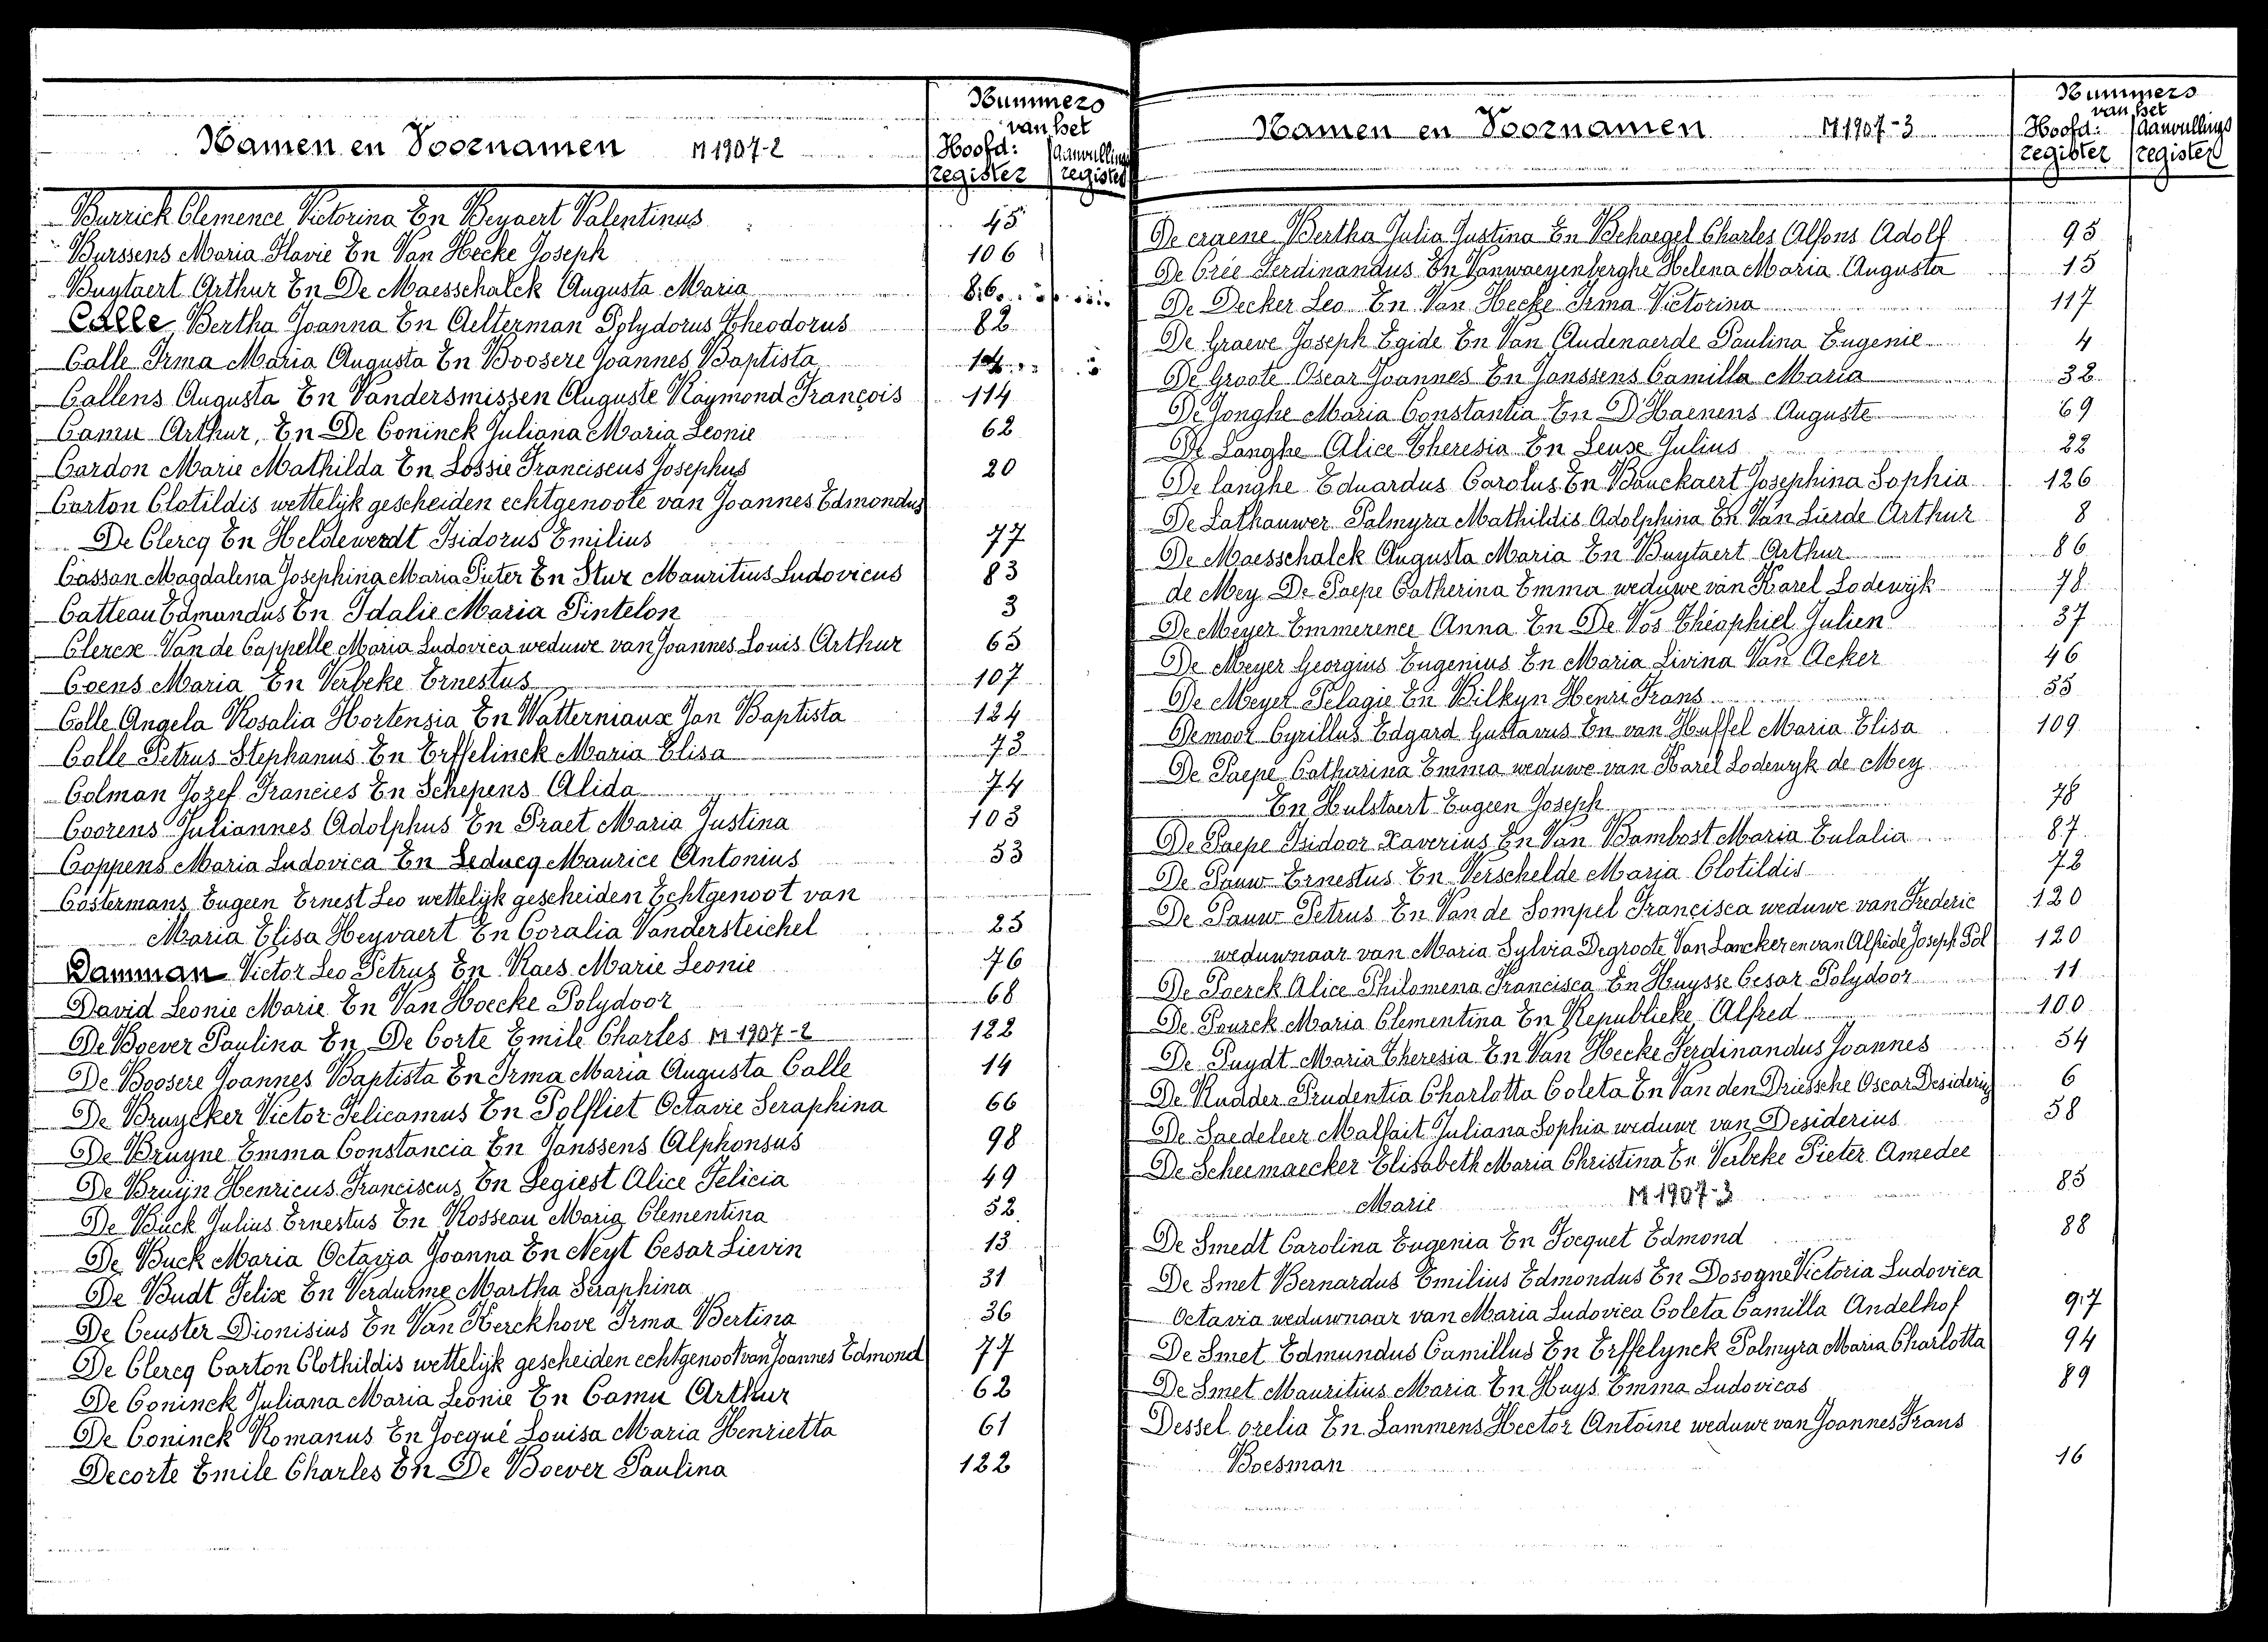 Namen en Voornamen M 1907-2
Nummers van het
Hoofd: register
Aanvullings register
Burrick Clemence Victorina En Beyaert Valentinus 45
Burssens Maria Flavie En Van Hecke Joseph 106
Buytaert Arthur En De Maesschalck Augusta Maria 86
Calle Bertha Joanna En Aelterman Polydorus Theodorus 82
Calle Irma Maria Augusta En Boosere Joannes Baptista 14
Callens Augusta En Vandersmissen Auguste Raymond François 114
Camu Arthur, En De Coninck Juliana Maria Leonie 62
Cardon Marie Mathilda En Lossie Franciscus Josephus 20
Carton Clotildis wettelijk gescheiden echtgenoote van Joannes Edmondus
De Clercq En Heldewerdt Isidorus Emilius 77
Casson Magdalena Josephina Maria Pieter En Stur Mauritius Ludovicus 83
Catteau Edmondus En Idalie Maria Pintelon 3
Clercx Van de Cappelle Maria Ludovica weduwe van Joannes Louis Arthur 65
Coens Maria En Verbeke Ernestus 107
Colle Angela Rosalia Hortensia En Watterniaux Jan Baptista 124
Colle Petrus Stephanus En Erffelinck Maria Elisa 73
Colman Jozef Francies En Schepens Alida 74
Coorens Juliannes Adolphus En Praet Maria Justina 103
Coppens Maria Ludovica En Leducq Maurice Antonius 53
Costermans Eugeen Ernest Leo wettelijk gescheiden Echtgenoot van
Maria Elisa Heyvaert En Coralia Vandersteichel 25
Damman Victor Leo Petrus En Raes Marie Leonie 76
David Leonie Marie En Van Hoecke Polydoor 68
De Boever Paulina En De Corte Emile Charles M 1907-2 122
De Boosere Joannes Baptista En Irma Maria Augusta Calle 14
De Bruycker Victor Telicamus En Polfliet Octavie Seraphina 66
De Bruyne Emma Constancia En Janssens Alphonsus 98
De Bruyn Henricus Franciscus En Legiest Alice Felicia 49
De Buck Julius Ernestus En Rosseau Maria Clementina 52
De Buck Maria Octavia Joanna En Neyt Cesar Lievin 13
De Budt Felix En Verdurme Martha Seraphina 31
De Ceuster Dionisius En Van Kerckhove Irma Bertina 36
De Clercq Carton Clothildis wettelijk gescheiden echtgenoot van Joannes Edmond 77
De Coninck Juliana Maria Leonie En Camu Arthur 62
De Coninck Romanus En Jocqué Louisa Maria Henrietta 61
Decorte Emile Charles En De Boever Paulina 122
Namen en Voornamen M 1907-3
Nummers van het
Hoofd: register
Aanvullings register
De craene Bertha Julia Justina En Behaegel Charles Alfons Adolf 95
De Crée Ferdinandus En Vanwaeyenberghe Helena Maria Augusta 15
De Decker Leo En Van Hecke Irma Victorina 117
De Graeve Joseph Egide En Van Audenaerde Paulina Eugenie 4
De Groote Oscar Joannes En Janssens Camilla Maria 32
De Jonghe Maria Constantia En D'Haenens Auguste 69
De Langhe Alice Theresia En Leuse Julius 22
De langhe Eduardus Carolus En Bauckaert Josephina Sophia 126
De Lathauwer Palmyra Mathildis Adolphina En Van Lierde Arthur 8
De Maesschalck Augusta Maria En Buytaert Arthur 86
de Mey De Paepe Catherina Emma weduwe van Karel Lodewijk 78
De Meyer Emmerence Anna En De Vos Théophiel Julien 37
De Meyer Georgius Eugenius En Maria Livina Van Acker 46
De Meyer Pelagie En Bilkyn Henri Frans 55
Demoor Cyrillus Edgard Gustavus En van Huffel Maria Elisa 109
De Paepe Catharina Emma weduwe van Karel Lodewyk de Mey
En Hulstaert Eugeen Joseph 78
De Paepe Isidoor Xaverius En Van Bambost Maria Eulalia 87
De Pauw Ernestus En Verschelde Maria Clotildis 72
De Pauw Petrus En Van de Sompel Francisca weduwe van Frederic 120
weduwnaar van Maria Sylvia Degroote Van Lancker en van Alfrède Joseph Pol 120
De Poerck Alice Philomena Francisca En Huysse Cesar Polydoor 11
De Pourck Maria Clementina En Republieke Alfred 100
De Puydt Maria Theresia En Van Hecke Ferdinandus Joannes 54
De Rudder Prudentia Charlotta Coleta En Van den Driessche Oscar Desiderius 6
De Saedeleer Malfait Juliana Sophia weduwe van Desiderius 58
De Scheemaecker Elisabeth Maria Christina En Verbeke Pieter Amedee
Marie M 1907-3 85
De Smedt Carolina Eugenia En Focquet Edmond 88
De Smet Bernardus Emilius Edmondus En Dosogne Victoria Ludovica
Octavia weduwnaar van Maria Ludovica Coleta Camilla Andelhof 97
De Smet Edmundus Camillus En Erffelynck Palmyra Maria Charlotta 94
De Smet Mauritius Maria En Huys Emma Ludovicas 89
Dessel orelia En Lammens Hector Antoine weduwe van Joannes Frans
Boesman 16